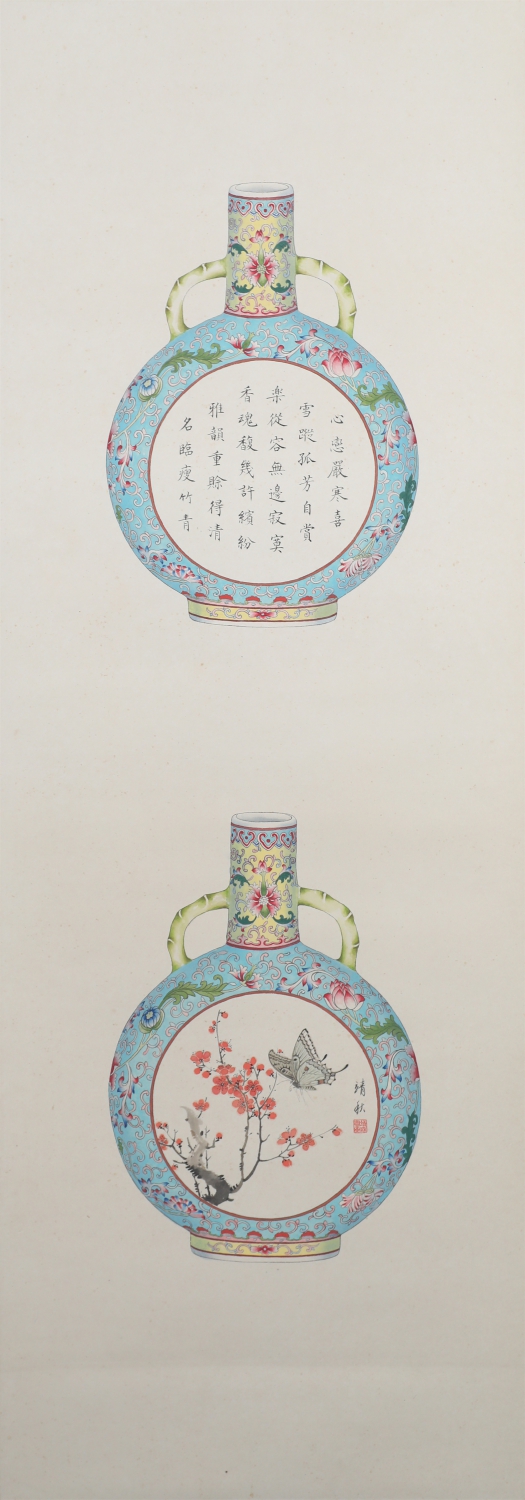 心恋嚴寒喜
雪蹤孤芳自賞
樂從容無邊寂寞
香魂馥幾許繽紛
雅韻重賒得清
名臨瘦竹青
靖秋